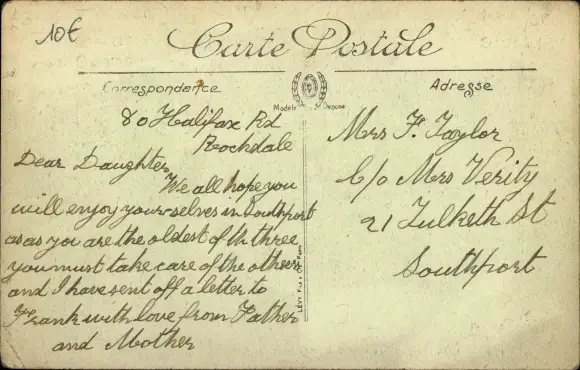 10€
Carte Postale
Correspondance
Adresse
Modèle Déposé
80 Halifax Rd
Rochdale
Dear Daughter
We all hope you
will enjoy yourselves in Southport
as as you are the oldest of th three
you must take care of the others
and I have sent off a letter to
Frank with love from Father
and Mother
Mrs F. Taylor
C/o Mrs Verity
21 Tulketh St
Southport